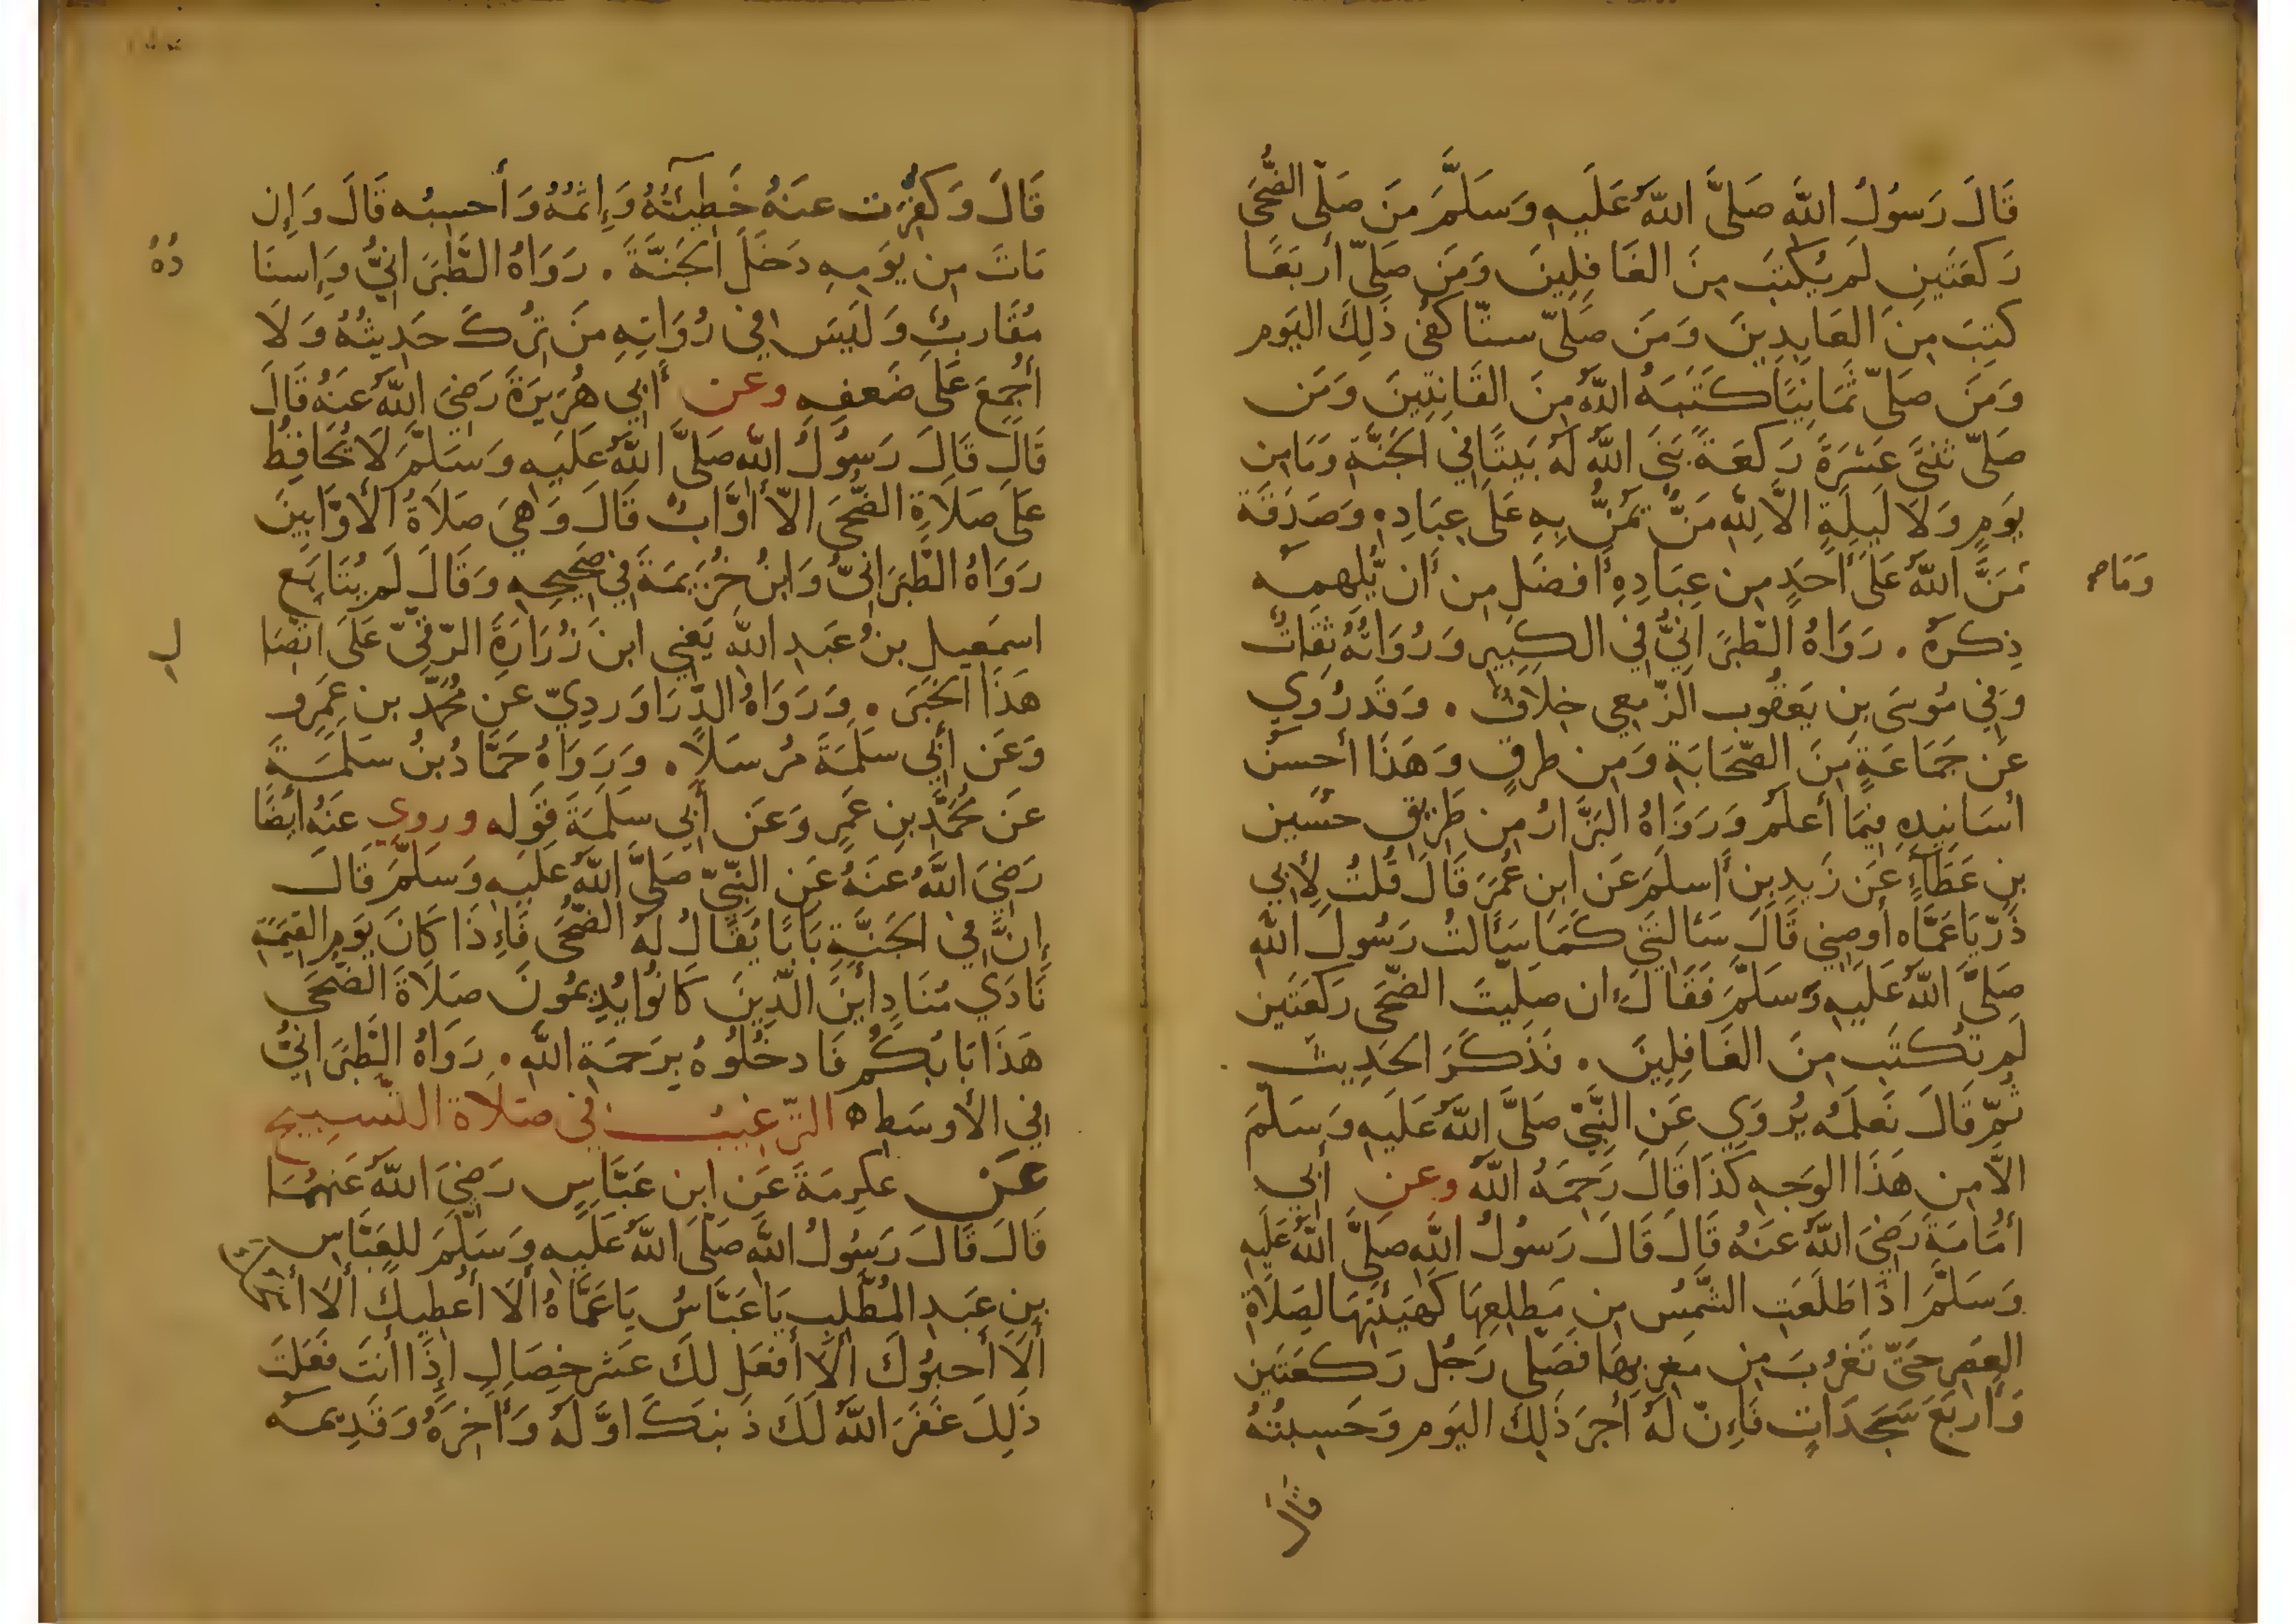 قَالَ رَسُولُ اللَّه صَلَّى اللَّهُ عَلَيهِ وَسَلَّمَ مَن صَلَّى الضُّحَى
رَكعَتَينِ لَم يُكتَب مِنَ الغَافِلِينَ وَمَن صَلَّى أَربَعًا
كتِبَ مِنَ العَابِدِينَ وَمَن صَلَّى ستّا كفُى ذَلِكَ اليَوم
وَمَن صَلَّى ثَمَانِيًا كَتَبَهُ اللَّهُ مِنَ القَانِتِينَ وَمَن
صَلَّى ثنتَى عَشرَةَ رَكعَةً بَنَى اللَّهُ لَهُ بَيتًا فِي الجَنَّةِ وَمَا مِن
يَومٍ وَلَا لَيلَةٍ الَّا لِلَّهِ مَنٌّ يَمُنُّ بِهِ عَلَى عِبَادِهِ وَصَدَقَة
مَنَّ اللَّهُ عَلَى أَحَدٍ مِن عِبَادِهِ أَفضَلَ مِن أَن يُّلهِمهُ
وَمَا صح
ذِكرَهُ . رَوَاهُ الطَّبَرَانِيُّ فِي الكَبِيرِ وَرُوَاتُهُ ثِقَاتٌ
وَفِي مُوسَى بنِ يَعقُوب الزَّمعِي خِلَافٌ . وَقَد رُوِي
عَن جَمَاعَةٍ مِنَ الصَّحَابَةِ وَمِن طرقٍ وَهَذَا أَحسَن
أسَانِيدِهِ فِيمَا أَعلَم وَرَوَاهُ البَزَّارُ مِن طَرِيقِ حسَين
بنِ عَطَاءٍ عَن زَيدِ بنِ أَسلَمَ عَن ابن عُمَرَ قَالَ قُلتُ لِأَبِي
ذَرّ يَا عَمَّاه أَوصِنِي قَالَ سَأَلتَنِي كَمَا سَأَلتُ رَسُولَ اللَّهِ
صَلَّى اللَّهُ عَلَيهِ وَسَلَّمَ فَقَالَ إن صَلَّيتَ الضُّحَى رَكعَتَين
لَم تُكتَب مِنَ الغَافِلِينَ . فَذَكَرَ الحَدِيثَ
ثُمَّ قَالَ نَعلَمُه يُروَى عَنِ النَّبِيِّ صَلَّى اللَّهُ عَلَيهِ وَسَلَّمَ
الَّا مِن هَذَا الوَجهِ كَذَا قَالَ رَحِمَهُ اللَّه وعن أَبِي
أُمَامَةَ رَضِيَ اللَّهُ عَنهُ قَالَ قَالَ رَسُولُ اللَّهِ صَلَّى اللَّهُ عَلَيهِ
وَسَلَّمَ اذَا طَلَعَتِ الشَّمسُ مِن مَطلِعِهَا كَهَيئَتِهَا لِصَلَاةِ
العَصر حَتَّى تَغرُبَ مِن مَغرِبِهَا فَصَلَّى رَجُل رَكعَتَينِ
وَأَربَعَ سَجَدَاتٍ فَإِنَّ لَهُ أَجرَ ذَلِكَ اليَوم وَحَسِبتُهُ
قال
قَالَ وَكفِّرَت عنهُ خَطِيئَتُهُ وَإِثمُهُ وَأَحسِبُه قَالَ وَإِن
مَاتَ مِن يَومِهِ دَخَلَ الجَنَّةَ . رَوَاهُ الطَّبَرَانِيُّ وَإِسنَا
دُهُ
مُقَارِبٌ وَلَيسَ فِي رُوَاتِهِ مَن تُرِكَ حَدِيثُهُ وَلَا
أُجمِعَ عَلَى ضَعفِهِ وعَن أَبِي هُرَيرَةَ رَضِيَ اللَّهُ عَنهُ قَالَ
قَالَ قَالَ رَسُولُ اللَّه صَلَّى اللَّهُ عَلَيهِ وَسَلَّمَ لَا يُحَافِظُ
عَلَى صَلَاةِ الضُّحَى الَّا أَوَّابٌ قَالَ وَهِيَ صَلَاةُ الأَوَّابِينَ
رَوَاهُ الطَّبَرَانِيُّ وَابنُ خُزَيمَةَ فِي صَحِيحِهِ وَقَالَ لَم يُتَابَع
اسمَعِيل بنُ عَبدِ اللَّهِ يَعنِي ابنَ زُرَارَةَ الرّقِيّ عَلَى اتّصَا
لِ
هَذَا الخَبَرِ . وَرَوَاهُ الدَّرَاوَردِيّ عَن مُحَمَّد بن عَمرو
وَعَن أَبِي سَلَمَةَ مُرسَلًا . وَرَوَاهُ حَمَّادُ بنُ سَلَمَةَ
عَن مُحَمَّدِ بنِ عَمرٍ وَعَن أَبِي سَلَمَةَ قَوله وروي عَنهُ أَيضًا
رَضِيَ اللَّهُ عَنهُ عَن النَّبِيِّ صَلَّى اللَّهُ عَلَيهِ وَسَلَّمَ قَالَ
إِنَّ فِي الجَنَّةِ بَابًا يُقَالُ لَهُ الضُّحَى فَإِذَا كَانَ يَوم القِيمَةِ
نَادَى مُنَادٍ أَينَ الَّذِينَ كَانُوا يُدِيمُونَ صَلَاةَ الضُّحَى
هَذَا بَابُكُم فَادخُلُوهُ بِرَحمَةِ اللَّهِ . رَوَاهُ الطَّبَرَانِيُّ
فِي الأَوسَطِ ه التَّرغِيب فِي صَلَاة التَّسبِيح
عَن عكرِمَةَ عَن ابنِ عَبَّاسٍ رَضِيَ اللَّهُ عَنهُمَا
قَالَ قَالَ رَسُولُ اللَّهِ صَلَّى اللَّهُ عَلَيهِ وَسَلَّمَ لِلعَبَّاسِ
بنِ عَبدِ المُطَّلِبِ يَا عَبَّاسُ يَا عَمَّاهُ أَلَا أُعطِيكَ أَلَا
أَلَا أَحبُوكَ أَلَا أَفعَل لكَ عَشر خِصَالٍ إِذَا أَنتَ فَعَلتَ
ذَلِكَ غَفَرَ اللَّهُ لَكَ ذَنبَكَ اوَّلَهُ وَآخِرَهُ وَقَدِيمَهُ